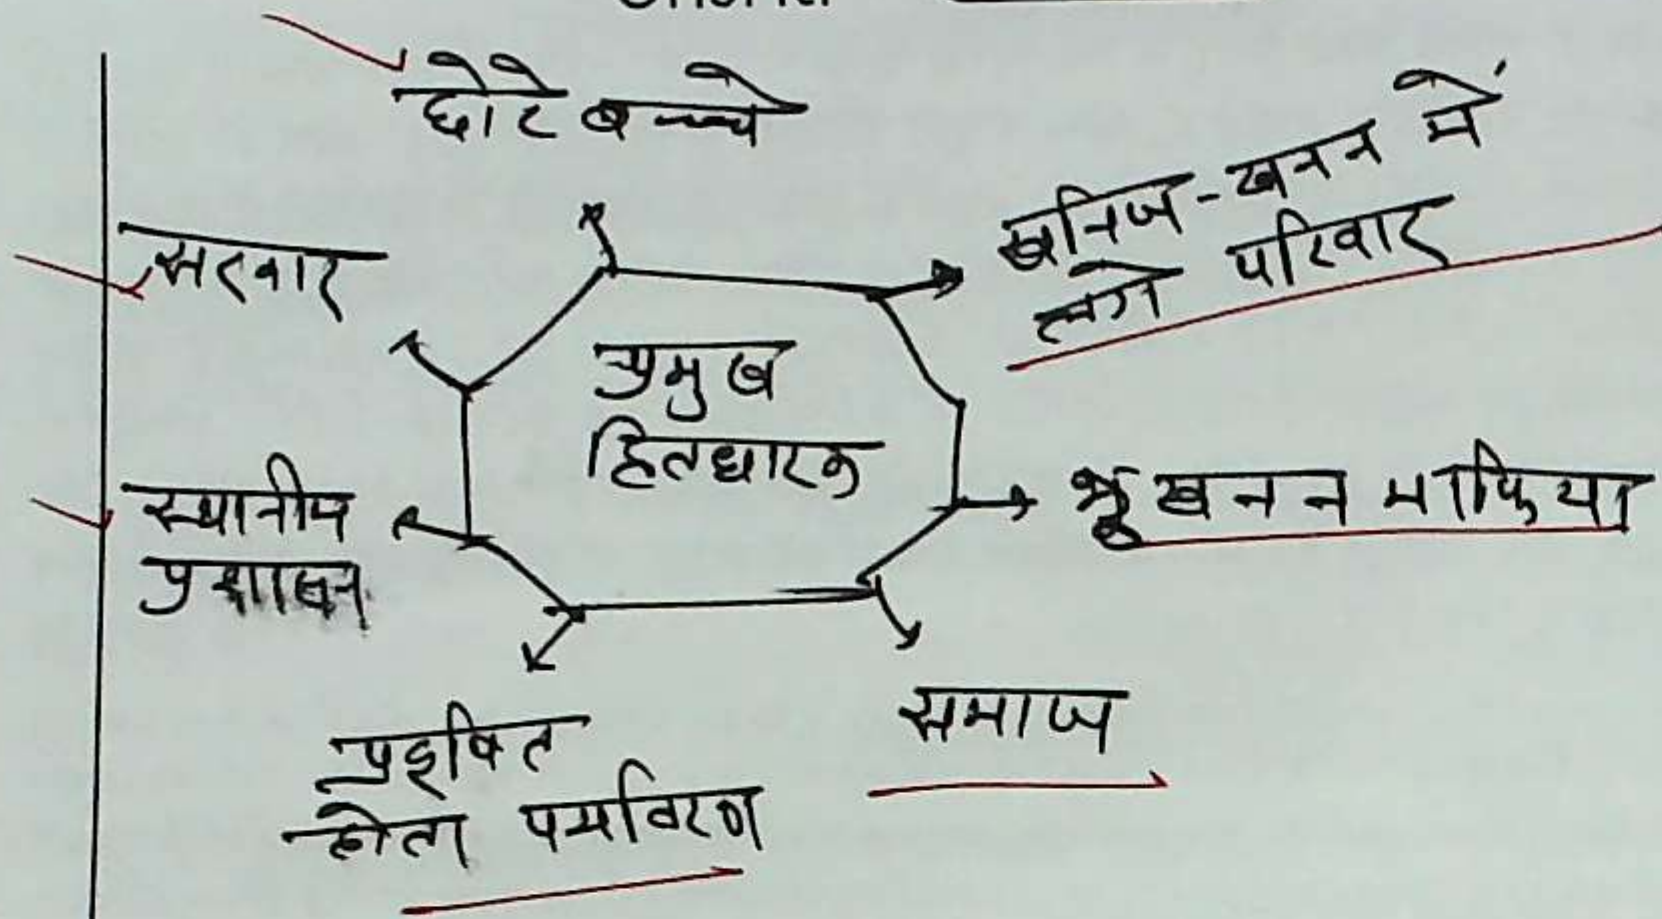 छोटे बच्चे
खनिज-खनन में
लगे परिवार
सरकार
प्रमुख
हितधारक
भू खनन माफिया
स्थानीय
प्रशासन
समाज
प्रदूषित
होता पर्यावरण